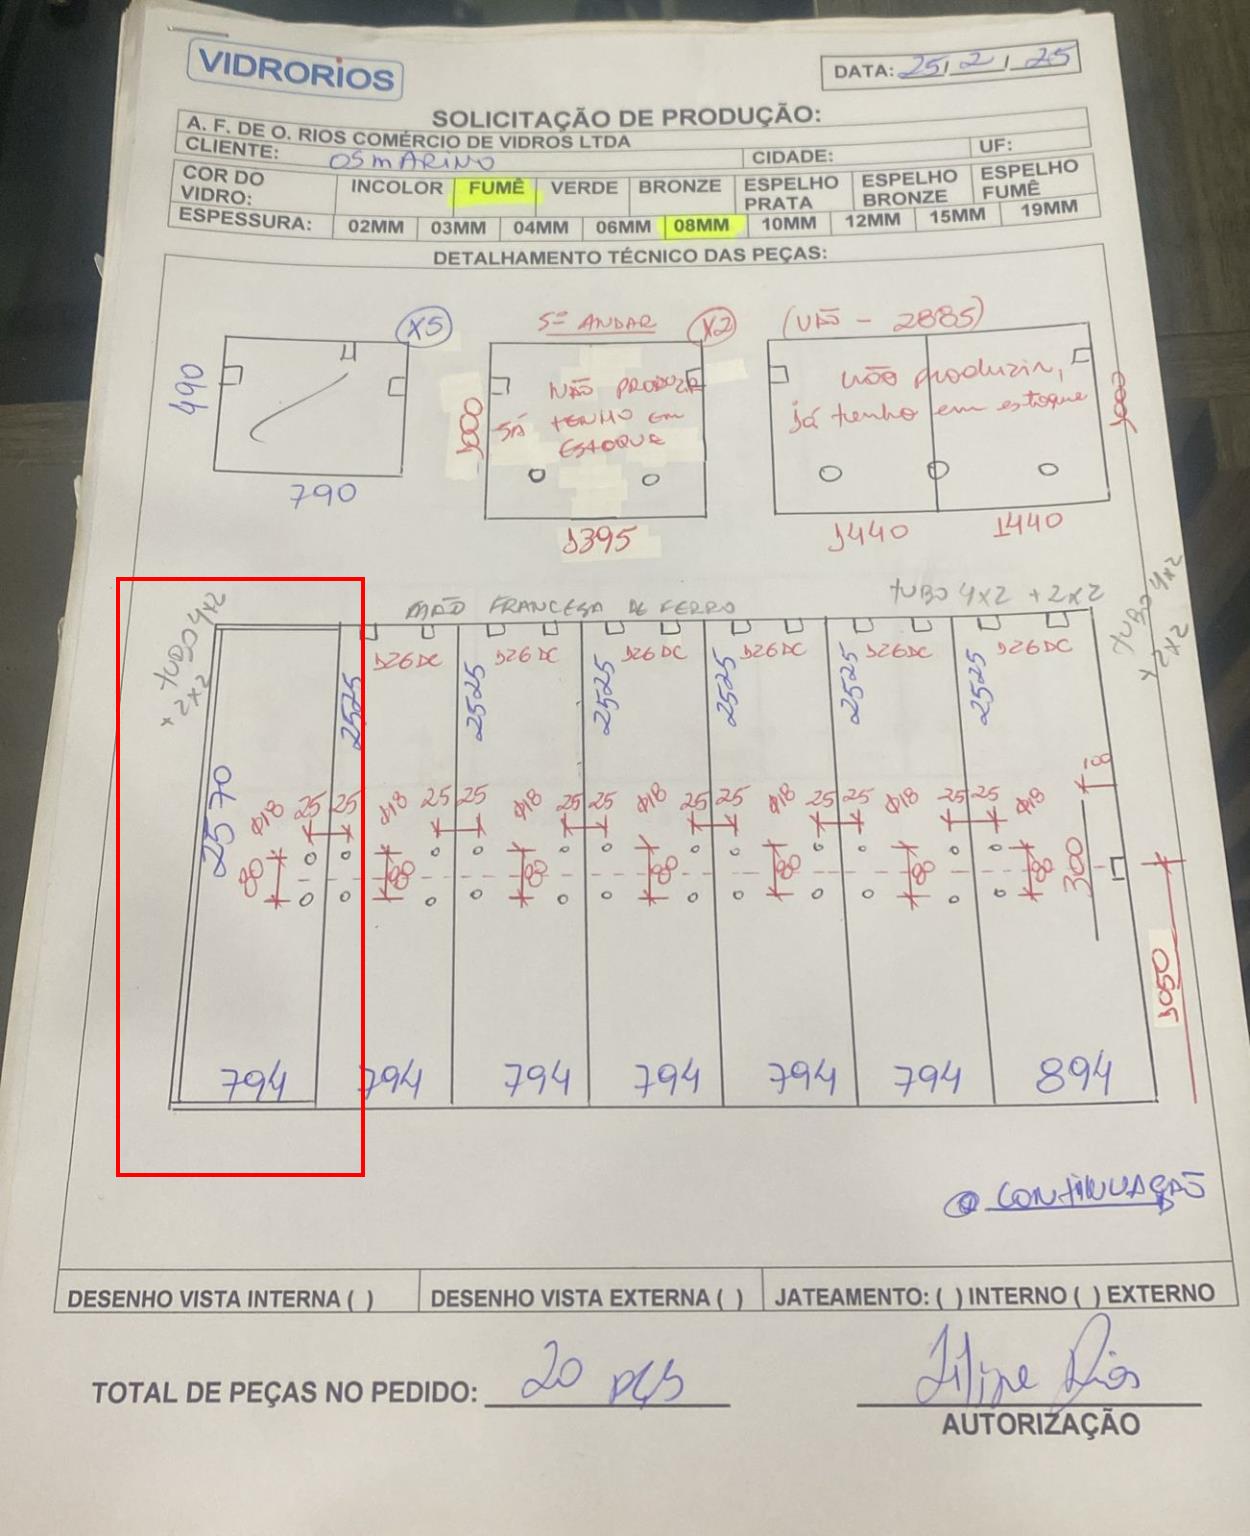 VIDRORIOS
DATA: 25/2/25
SOLICITAÇÃO DE PRODUÇÃO:
A. F. DE O. RIOS COMÉRCIO DE VIDROS LTDA
CLIENTE: OSMARINO CIDADE: UF:
COR DO VIDRO: INCOLOR FUMÊ VERDE BRONZE ESPELHO PRATA ESPELHO BRONZE ESPELHO FUMÊ
ESPESSURA: 02MM 03MM 04MM 06MM 08MM 10MM 12MM 15MM 19MM
DETALHAMENTO TÉCNICO DAS PEÇAS:
X5
490
790
5º ANDAR X2
NÃO PRODUZIR
JÁ TENHO EM
ESTOQUE
1000
1395
(VÃO - 2885)
não produzir,
já tenho em estoque
1000
1440 1440
TUBO 4x2
+ 2x2
MÃO FRANCESA DE FERRO
TUBO 4x2 + 2x2
TUBO 4x2
+ 2x2
126DC 126DC 126DC 126DC 126DC 126DC
2525 2525 2525 2525 2525 2525
2570
Φ18 25 25 Φ18 25 25 Φ18 25 25 Φ18 25 25 Φ18 25 25 Φ18 25 25 Φ18
100
80 80 80 80 80 80 80
300
1050
794 794 794 794 794 794 894
CONTINUAÇÃO
DESENHO VISTA INTERNA ( ) DESENHO VISTA EXTERNA ( ) JATEAMENTO: ( ) INTERNO ( ) EXTERNO
TOTAL DE PEÇAS NO PEDIDO: 20 pçs
Filipe Rios
AUTORIZAÇÃO